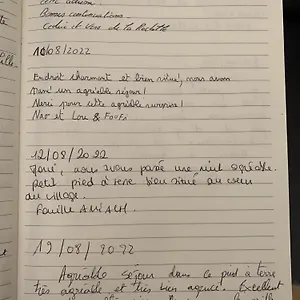 Bonnes continuations.
Cédric et Vero de la Rochelle
10/08/2022
Endroit charmant et bien situé, nous avons
passé un agréable séjour!
Merci pour cette agréable surprise!
Nao et Lou & Foufi
12/08/2022
Joué, nous avons passé une nuit agréable.
Petit pied à terre bien situé au cœur
du village.
Famille
19/08/2022
Agréable séjour dans ce pied à terre
très agréable et très bien agencé. Excellent